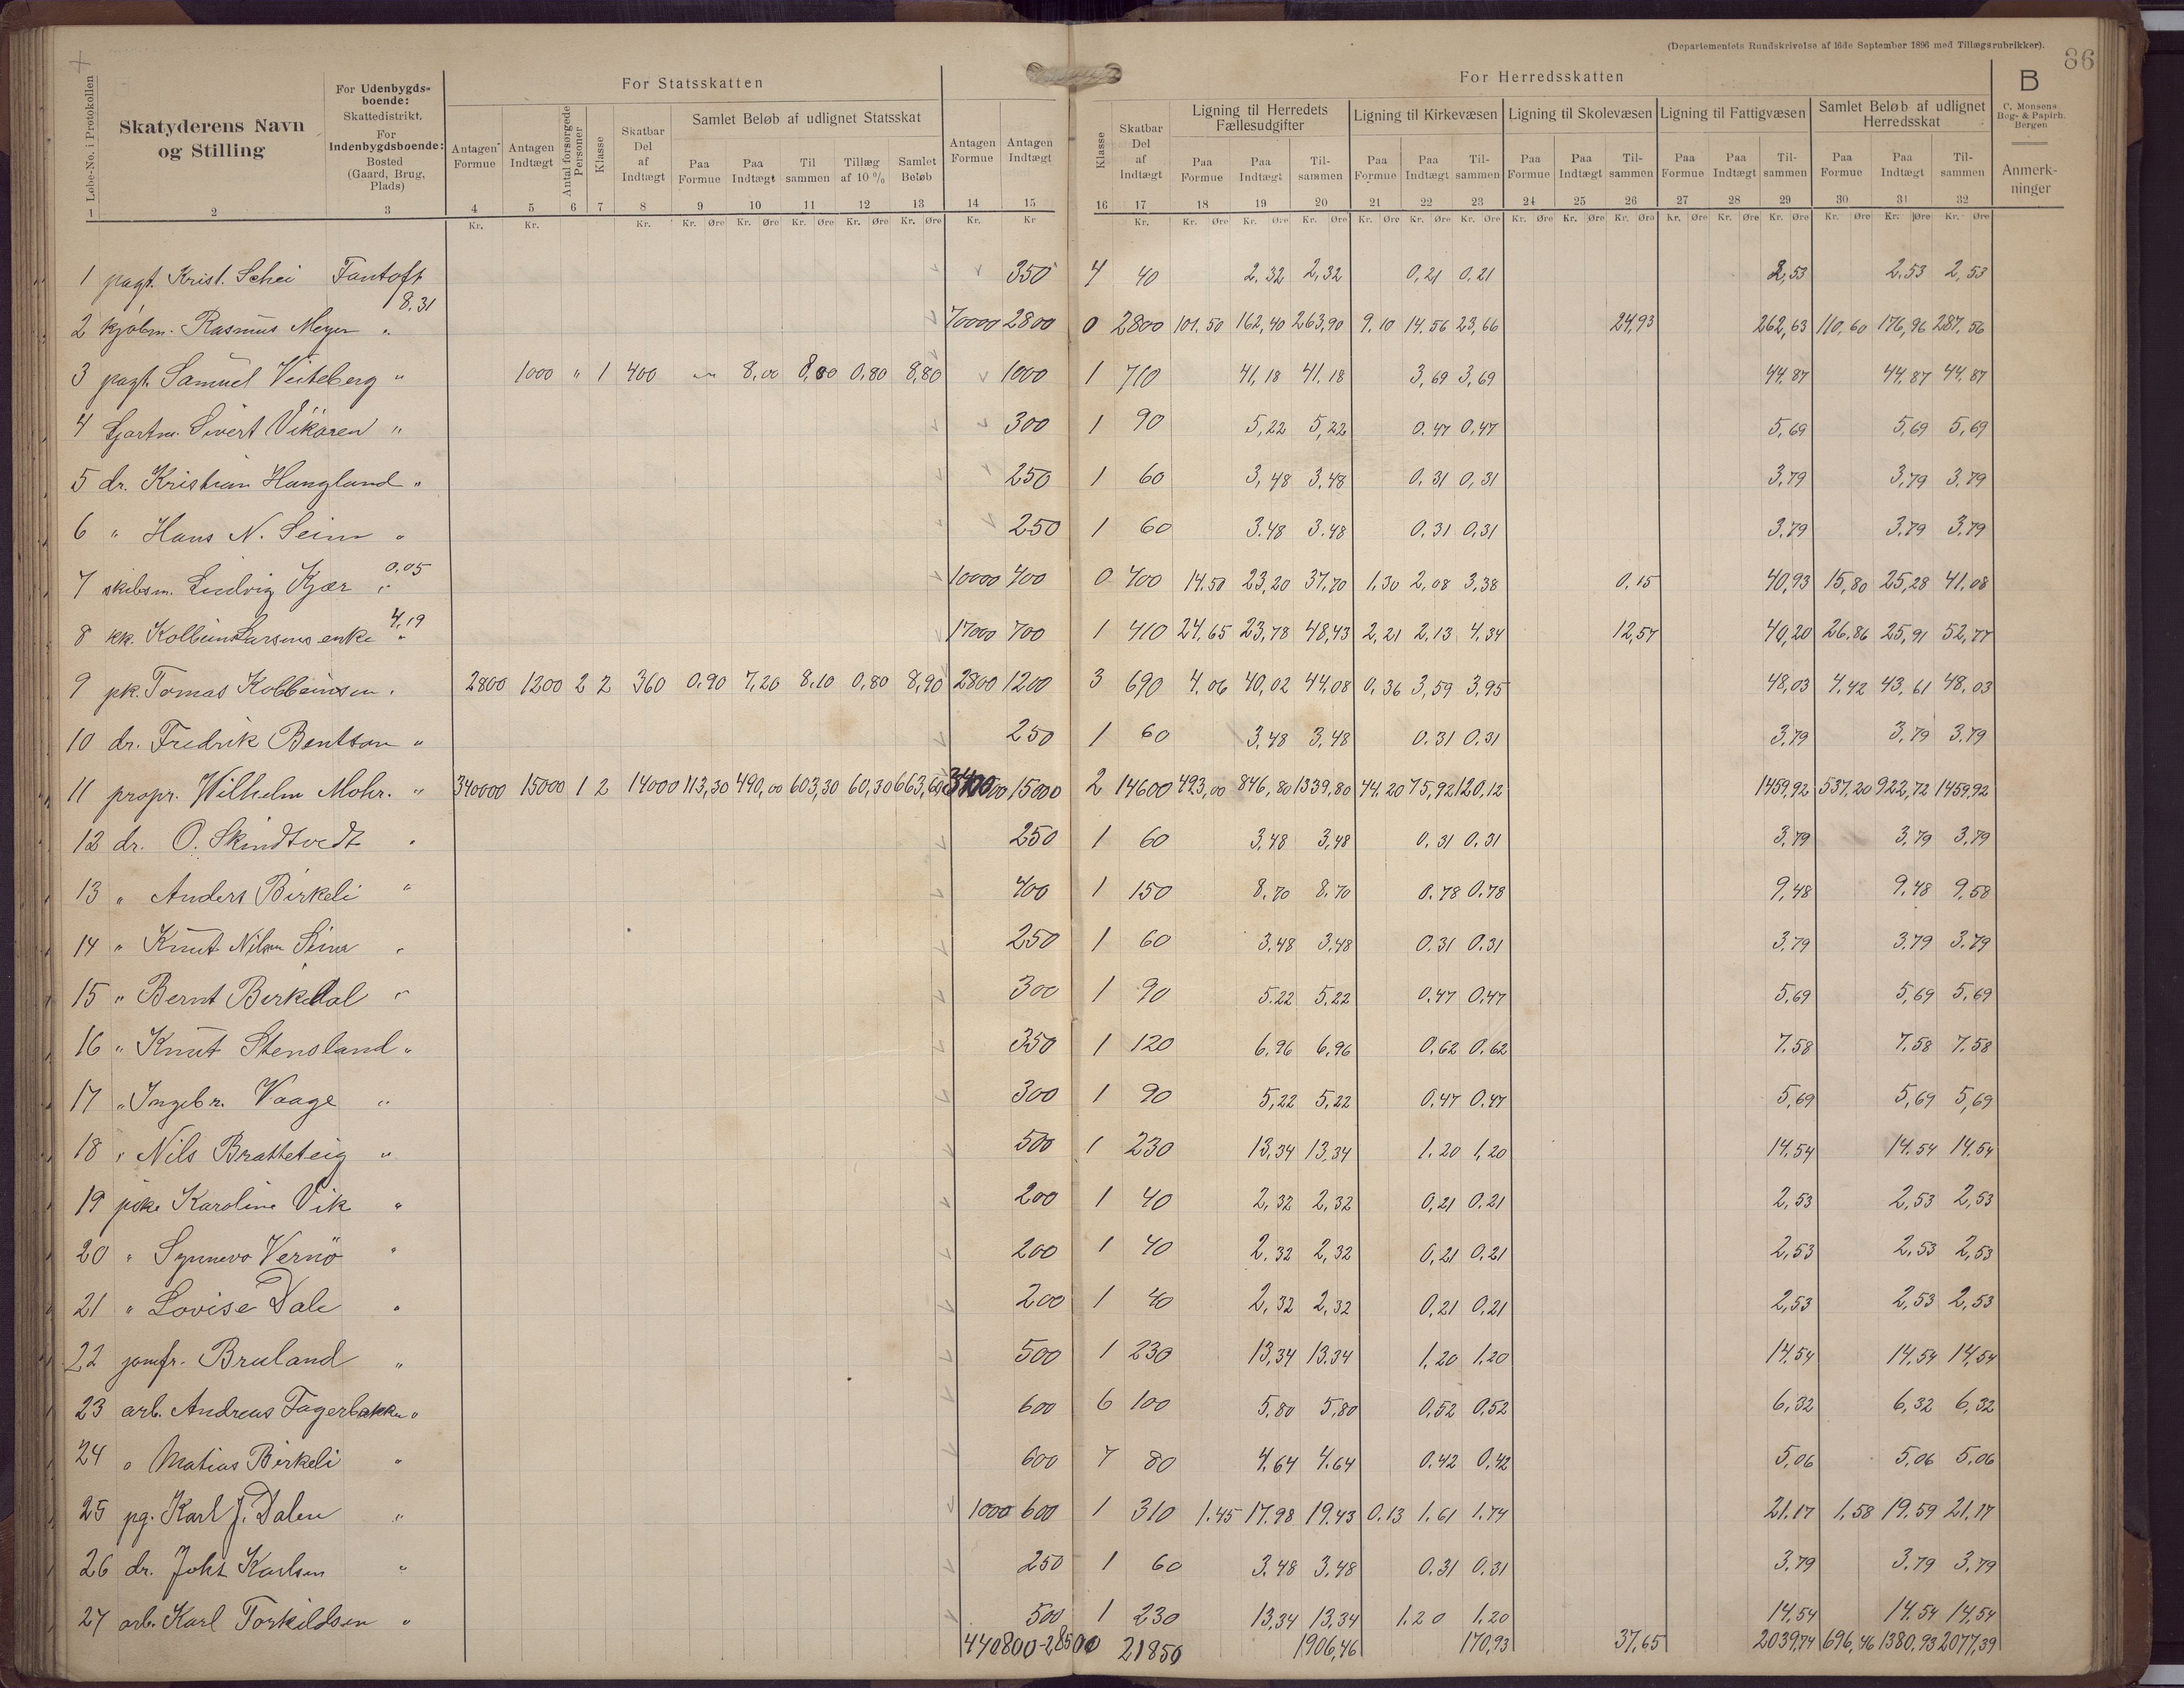 (Departementets Rundskrivelse af 16de September 1896 med Tillægsrubrikker).
86
Løbe-No. i Protokollen
Skatyderens Navn og Stilling
For Udenbygdsboende: Skattedistrikt. For Indenbygdsboende: Bosted (Gaard, Brug, Plads)
For Statsskatten
Antagen Formue
Antagen Indtægt
Antal forsørgede Personer
Klasse
Skatbar Del af Indtægt
Samlet Beløb af udlignet Statsskat
Paa Formue
Paa Indtægt
Til sammen
Tillæg af 10 %
Samlet Beløb
For Herredsskatten
Antagen Formue
Antagen Indtægt
Klasse
Skatbar Del af Indtægt
Ligning til Herredets Fællesudgifter
Paa Formue Paa Indtægt Til-sammen
Ligning til Kirkevæsen
Paa Formue Paa Indtægt Til-sammen
Ligning til Skolevæsen
Paa Formue Paa Indtægt Til-sammen
Ligning til Fattigvæsen
Paa Formue Paa Indtægt Til-sammen
Samlet Beløb af udlignet Herredsskat
Paa Formue Paa Indtægt Til-sammen
B
C. Monsens Bog- & Papirh. Bergen
Anmerk-ninger
1 2 3 4 5 6 7 8 9 10 11 12 13 14 15 16 17 18 19 20 21 22 23 24 25 26 27 28 29 30 31 32
Kr. Kr. Kr. Kr. Øre Kr. Øre Kr. Øre Kr. Øre Kr. Øre Kr. Kr Kr. Kr. Øre Kr. Øre Kr. Øre Kr. Øre Kr. Øre Kr. Øre Kr. Øre Kr. Øre Kr. Øre Kr. Øre Kr. Øre Kr. Øre Kr. Øre Kr. Øre Kr. Øre
1 pagt. Krist. Schei Fantoft 350 4 40 2,32 2,32 0,21 0,21 2,53 2.53 2,53
8,31
2 kjøbm. Rasmus Meyer " 70000 2800 0 2800 101.50 162,40 263,90 9.10 14.56 23,66 24,93 262,63 110,60 176,96 287,56
3 pagt. Samuel Veiteberg " 1000 " 1 400 " 8,00 8,80 0,80 8,80 1000 1 710 41,18 41.18 3,69 3,69 44.87 44.87 44.87
4 Gartn. Sivert Vikøren " 300 1 90 5,22 5,22 0.47 0,47 5,69 5,69 5,69
5 dr. Kristian Haugland " 250 1 60 3,48 3,48 0.31 0,31 3,79 3,79 3.79
6 " Hans N. Seim " 250 1 60 3.48 3.48 0.31 0,31 3,79 3.79 3.79
0,05
7 skibsm. Ludvig Kjær " 10000 400 0 400 14.50 23,20 37,70 1,30 2,08 3,38 0,15 40,93 15,80 25,28 41,08
4,19
8 kk. Kolbein Larsens enke " 17000 700 1 410 24,65 23,78 48,43 2,21 2,13 4,34 12,57 40,20 26,86 25,91 52,77
9 pk. Tomas Kolbeinsen " 2800 1200 2 2 360 0,90 7,20 8,10 0,80 8,90 2800 1200 3 690 4,06 40,02 44,08 0,36 3,59 3,95 48,03 4,42 43,61 48,03
10 dr. Fredrik Bentson " 250 1 60 3,48 3,48 0.31 0.31 3,79 3,79 3.79
11 propr. Wilhelm Mohr. " 340000 15000 1 2 14000 113,30 490,00 603,30 60,30 663,60 340000 15000 2 14600 493,00 846,80 1339,80 44.20 75,92 120,12 1459,92 537,20 922,72 1459,92
12 dr. O. Skindtvedt " 250 1 60 3,48 3,48 0,31 0.31 3,79 3,79 3,79
13 " Anders Birkeli " 400 1 150 8,70 8,70 0.78 0.78 9,48 9,48 9,58
14 " Knut Nilsen Seim " 250 1 60 3,48 3,48 0.31 0.31 3,79 3.79 3.79
15 " Bernt Birkedal " 300 1 90 5.22 5,22 0,47 0,47 5,69 5,69 5,69
16 " Knut Stensland " 350 1 120 6,96 6,96 0.62 0.62 7.58 7.58 7.58
17 " Ingebr. Vaage " 300 1 90 5,22 5,22 0,47 0,47 5,69 5,69 5,69
18 " Nils Bratteteig " 500 1 230 13,34 13,34 1.20 1,20 14,54 14,54 14,54
19 pike Karoline Vik " 200 1 40 2,32 2,32 0,21 0,21 2,53 2,53 2,53
20 " Synneva Vernø " 200 1 40 2,32 2,32 0,21 0,21 2,53 2,53 2,53
21 " Lovise Dale " 200 1 40 2,32 2,32 0,21 0,21 2,53 2,53 2,53
22 jomfr. Bruland " 500 1 230 13,34 13.34 1,20 1,20 14,54 14,54 14,54
23 arb. Andreas Fagerbakke " 600 6 100 5,80 5,80 0,52 0,52 6,32 6,32 6,32
24 " Matias Birkeli " 600 7 80 4,64 4,64 0.42 0,42 5,06 5,06 5,06
25 pg. Karl J. Dalen " 1000 600 1 310 1.45 17.98 19.43 0.13 1,61 1.74 21.17 1,58 19.59 21,17
26 dr. Johs Karlsen " 250 1 60 3,48 3,48 0.31 0.31 3,79 3,79 3,79
27 arb. Karl Torkildsen " 500 1 230 13,34 13,34 1.20 1,20 14,54 14.54 14,54
440800 - 28500 21850 1906,46 170,93 37,65 2039,74 696,46 1380,93 2077,39